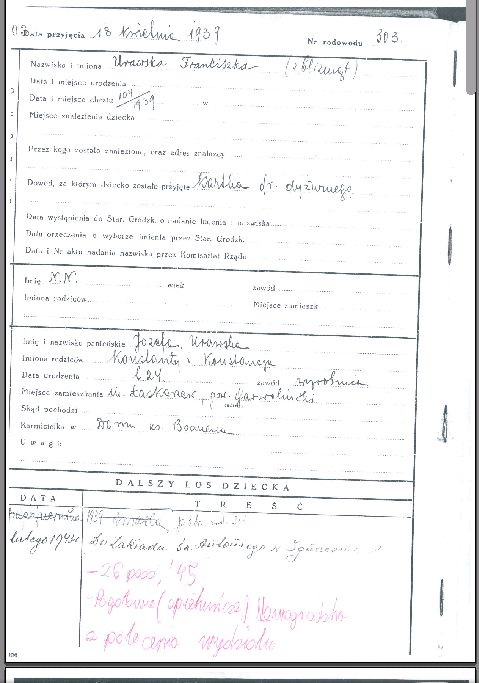 Data przyjęcia 18 kwietnia 1939
Nr rodowodu 303
Nazwisko i imiona Urawska Franciszka (z bliźniąt)
Data i miejsce urodzenia
Data i miejsce chrztu 10/4 1939 w
Miejsce znalezienia dziecka
Przez kogo zostało znalezione, oraz adres znalazcy
Dowód, za którym dziecko zostało przyjęte Kartka dr. dyżurnego
Data wystąpienia do Star. Grodzk. o nadanie imienia i nazwiska
Data orzeczenia o wyborze imienia przez Star. Grodzk.
Data i Nr aktu nadania nazwiska przez Komisariat Rządu
Imię N.N. wiek zawód
Imiona rodziców Miejsce zamieszk.
Imię i nazwisko panieńskie Józefa Urawska
Imiona rodziców Konstanty i Konstancja
Data urodzenia l. 24 zawód wyrobnica
Miejsce zamieszkania pow. Garwoliński
Skąd pochodzi
Karmicielka w Domu ks. Boduena
Uwagi:
DALSZY LOS DZIECKA
DATA TREŚĆ
1939
lutego 1943 Do Zakładu
- 26 paźd. '45
- Pogotowie (opiekuńcze)
z polecenia wydziału
106